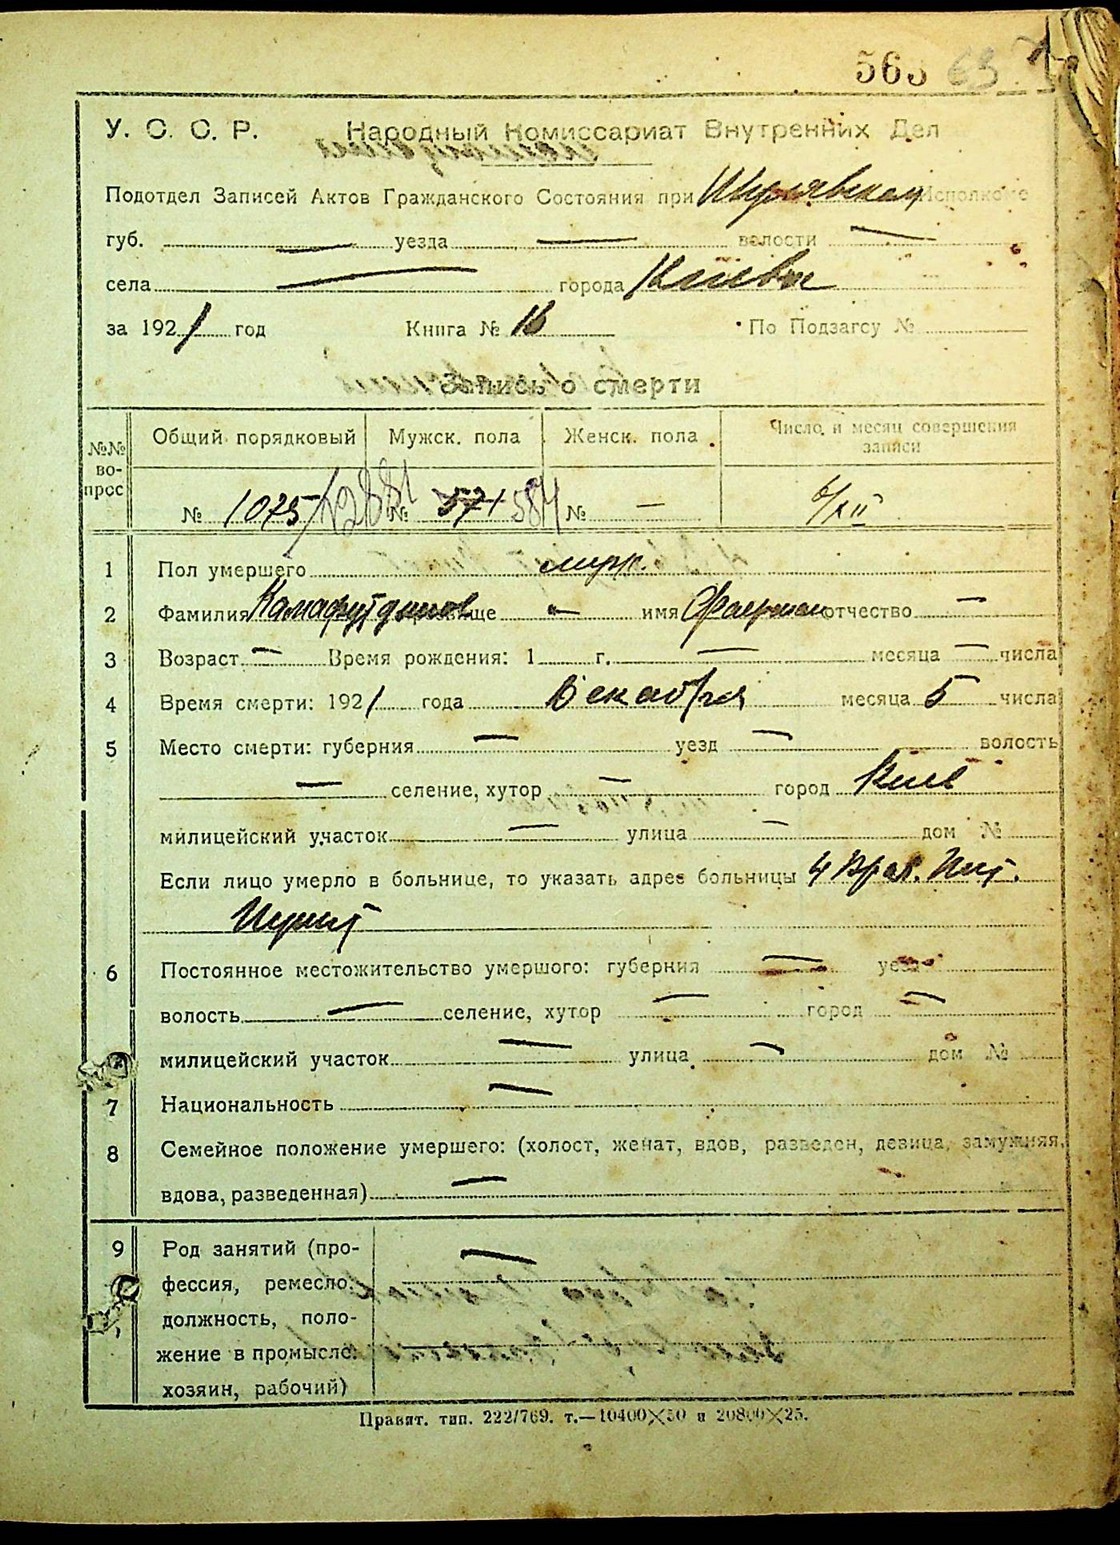 563 63
У. С. С. Р. Народный Комиссариат Внутренних Дел
Подотдел Записей Актов Гражданского Состояния при Шулявском Исполкоме
губ. — уезда — волости —
села — города Киева
за 1921 год Книга № 16 По Подзагсу №
Запись о смерти
№№ вопрос Общий порядковый Мужск. пола Женск. пола Число и месяц совершения записи
№ 1075/2881 № 571 584 № — 6/XII
1 Пол умершего муж.
2 Фамилия прозвище — имя отчество —
3 Возраст — Время рождения: 1 г. — месяца — числа
4 Время смерти: 1921 года Декабря месяца 5 числа
5 Место смерти: губерния — уезд — волость
— селение, хутор — город Киев
милицейский участок — улица — дом №
Если лицо умерло в больнице, то указать адрес больницы 4
6 Постоянное местожительство умершого: губерния — уезд —
волость — селение, хутор — город —
милицейский участок — улица — дом №
7 Национальность —
8 Семейное положение умершего: (холост, женат, вдов, разведен, девица, замужняя,
вдова, разведенная) —
9 Род занятий (про- —
фессия, ремесло,
должность, поло-
жение в промысле:
хозяин, рабочий)
Правит. тип. 222/769. т.—10400×50 и 20800×25.